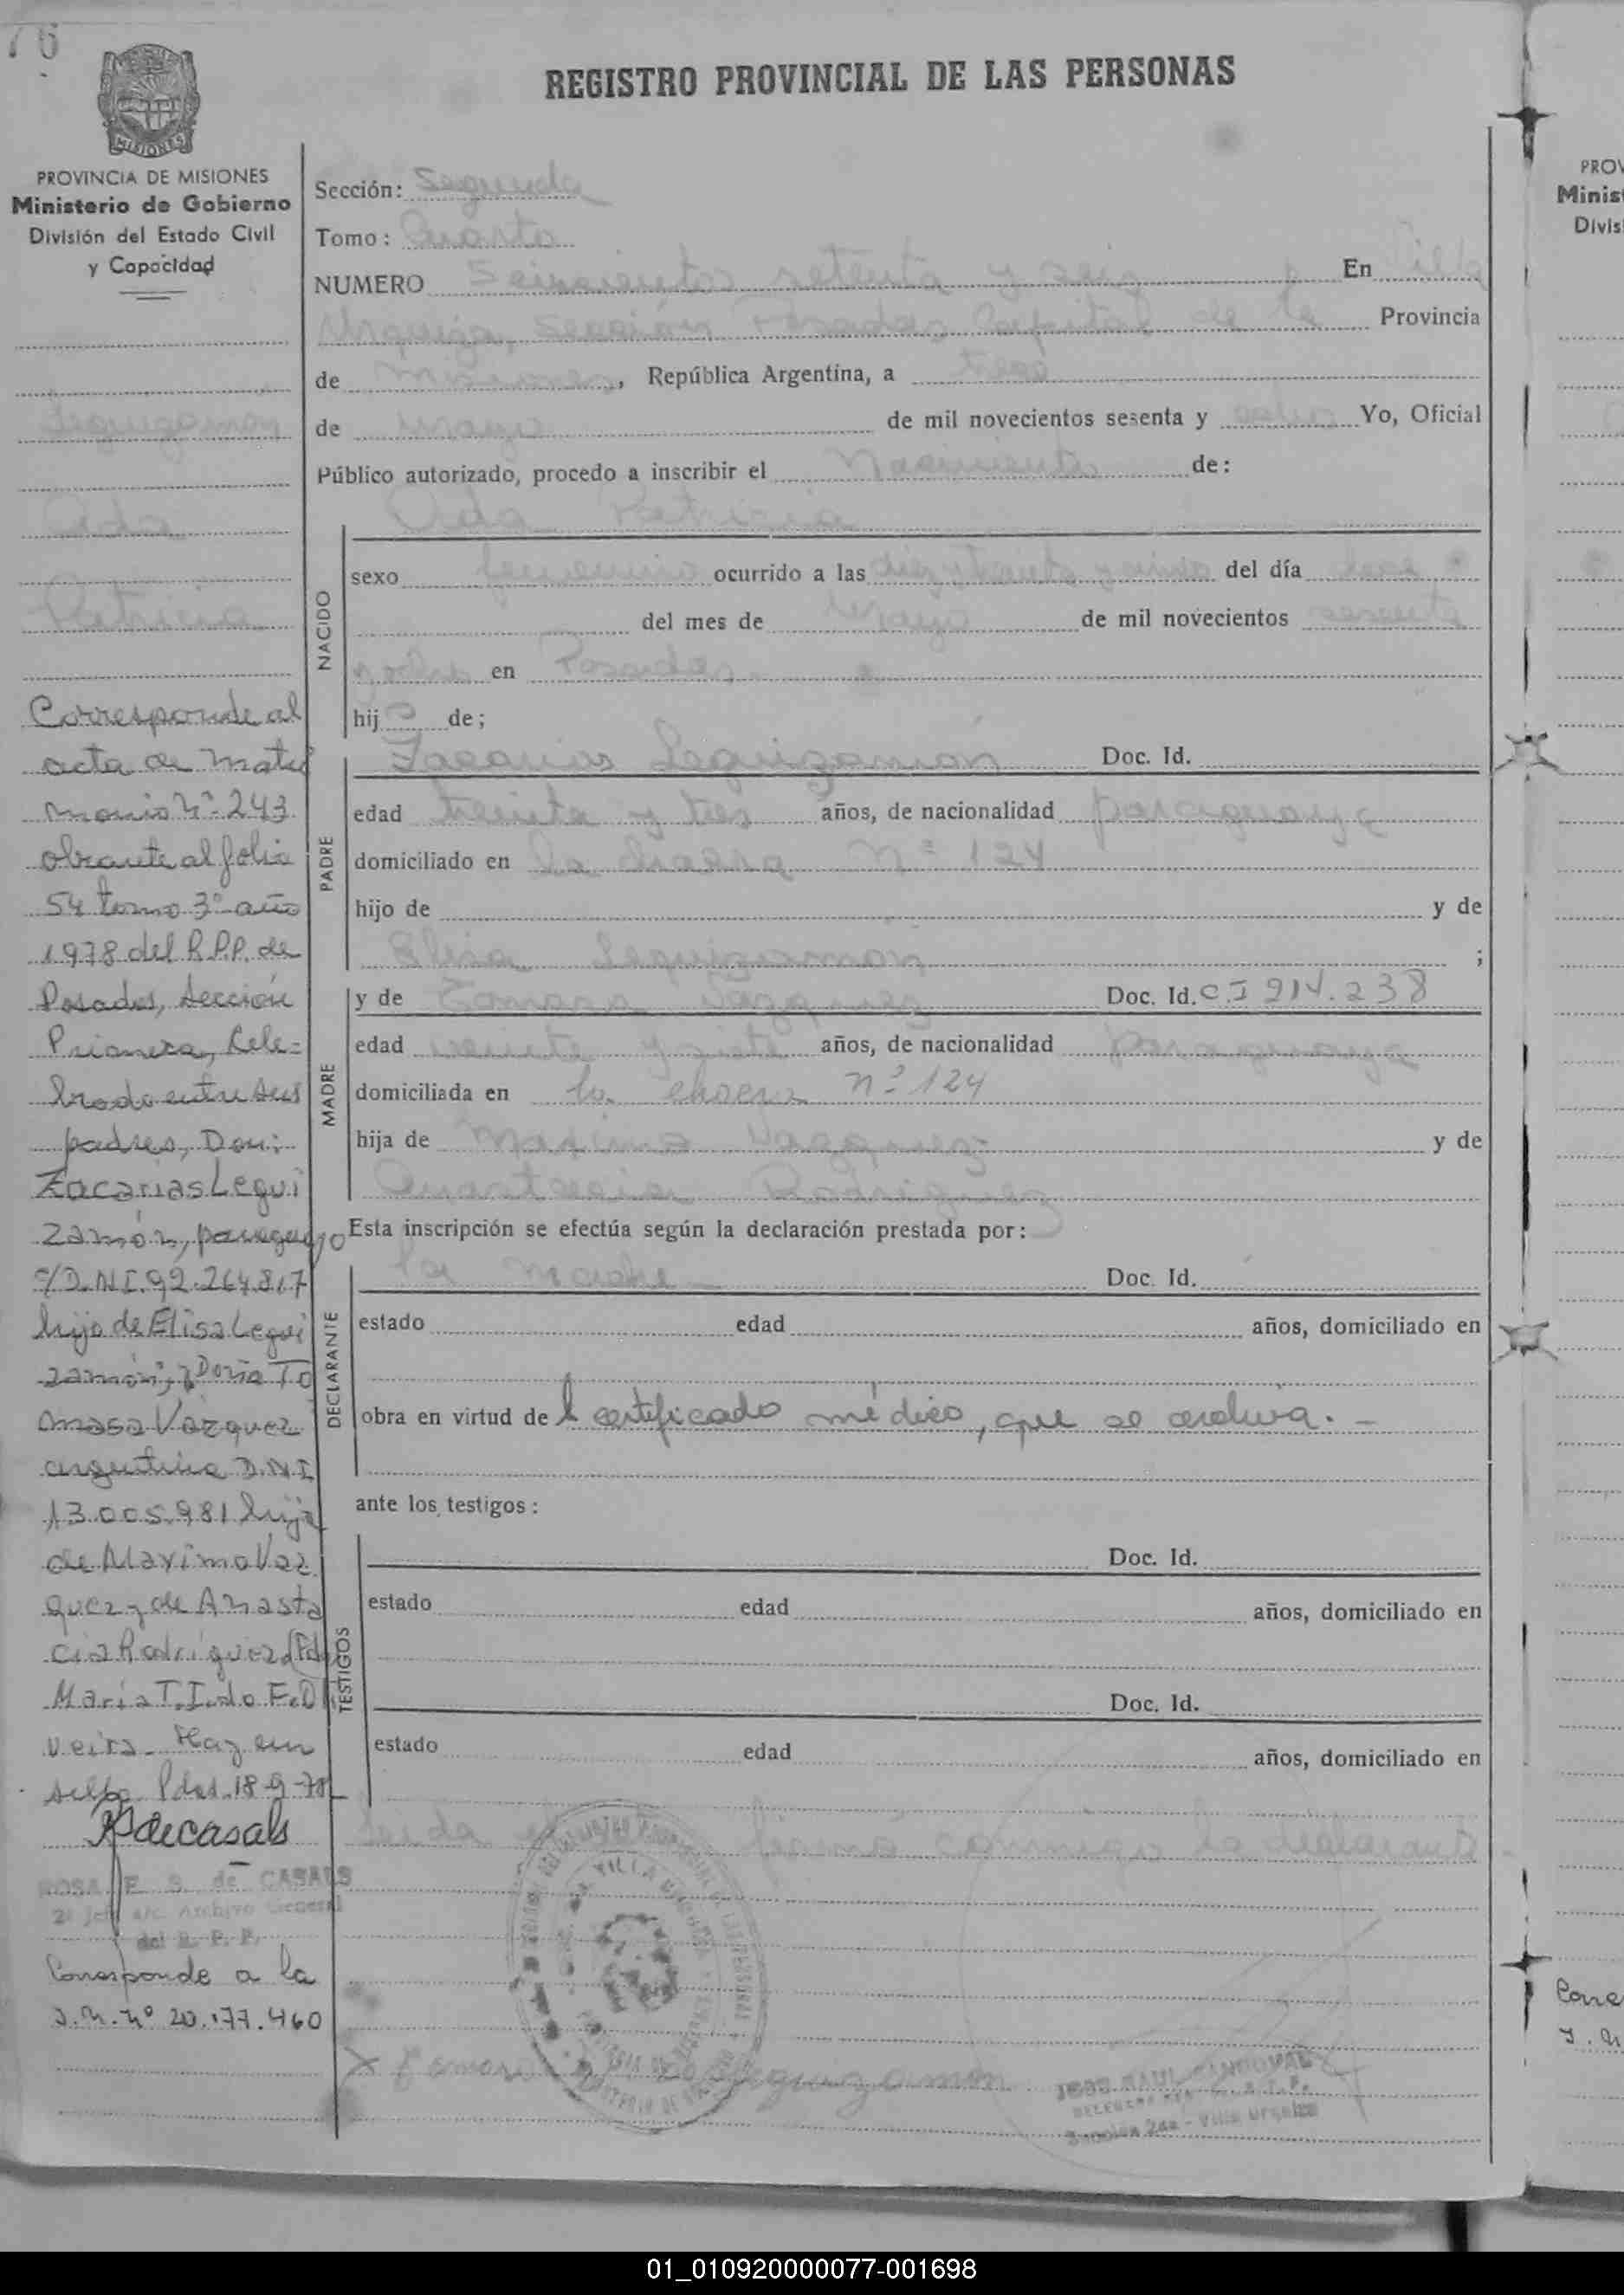 76
MISIONES
PROVINCIA DE MISIONES
Ministerio de Gobierno
División del Estado Civil
y Capacidad
REGISTRO PROVINCIAL DE LAS PERSONAS
Sección: Segunda
Tomo: Cuarto
NUMERO Seiscientos setenta y seis En Villa
Urquiza, Sección Posadas Capital de la Provincia
de Misiones, República Argentina, a trece
de mayo de mil novecientos sesenta y ocho Yo, Oficial
Público autorizado, procedo a inscribir el Nacimiento de:
Ada Patricia
NACIDO
sexo femenino ocurrido a las del día doce
del mes de Mayo de mil novecientos sesenta
y ocho en Posadas
hija de;
PADRE
Zacarias Leguizamón Doc. Id.
edad treinta y tres años, de nacionalidad paraguaya
domiciliado en la chacra Nº 124
hijo de y de
Elisa Leguizamón ;
MADRE
y de Tomasa Vazquez Doc. Id. C.I 914.238
edad veinte y siete años, de nacionalidad paraguaya
domiciliada en la chacra nº 124
hija de Maximo Vazquez y de
Anastacia Rodriguez
Esta inscripción se efectúa según la declaración prestada por:
DECLARANTE
la madre Doc. Id.
estado edad años, domiciliado en
obra en virtud del certificado médico, que se archiva. -
ante los testigos:
TESTIGOS
Doc. Id.
estado edad años, domiciliado en
Doc. Id.
estado edad años, domiciliado en
Leida el acta firmó conmigo la declarante
Tomasa V. de Leguizamón
VILLA URQUIZA
JESUS RAUL SANDOVAL
Sección 2da - Villa Urquiza
Leguizamón
Ada
Patricia
Corresponde al
acta de matri
monio Nº 243
obrante al folio
54 tomo 3º año
1978 del R.P.P. de
Posadas, Sección
Primera, Cele-
brado entre sus
padres, Don:
Zacarias Legui
zamón, paraguayo
c/D.N.I. 92.264.817
hijo de Elisa Legui
zamón; y Doña To
masa Vazquez
argentina D.N.I
13.005.981 hija
de Maximo Vaz
quez y de Anasta
cia Rodriguez (Fdo
Maria T. I. do F. Oli
veira. Hay un
sello. Pdas. 18-9-78
RdeCasals
ROSA E. S. de CASALS
2º Jefe a/c. Archivo General
del R. P. P.
Corresponde a la
J.N. Nº 20.177.460
PROV
Minist
Divis
Corre
01_010920000077-001698